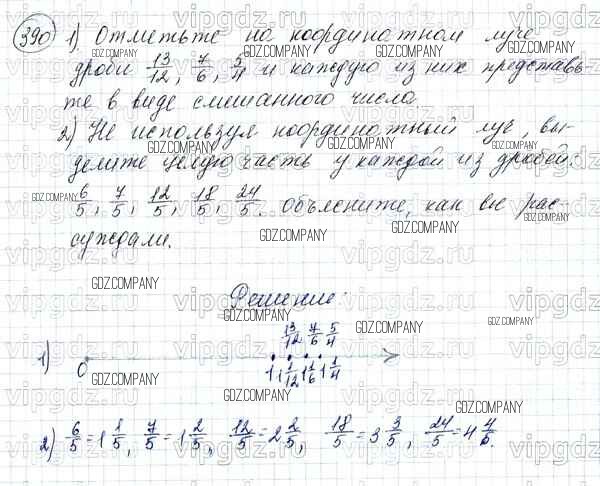 390 1) Отметьте на координатном луче
дроби 13/12, 7/6, 5/4 и каждую из них представь-
те в виде смешанного числа.
2) Не используя координатный луч, вы-
делите целую часть у каждой из дробей:
6/5, 7/5, 12/5, 18/5, 24/5. объясните, как вы рас-
суждали.
Решение:
13/12 7/6 5/4
1) 0 1 1 1/12 1 1/6 1 1/4
2) 6/5 = 1 1/5, 7/5 = 1 2/5, 12/5 = 2 2/5, 18/5 = 3 3/5, 24/5 = 4 4/5.
vipgdz.ru
GDZ.COMPANY